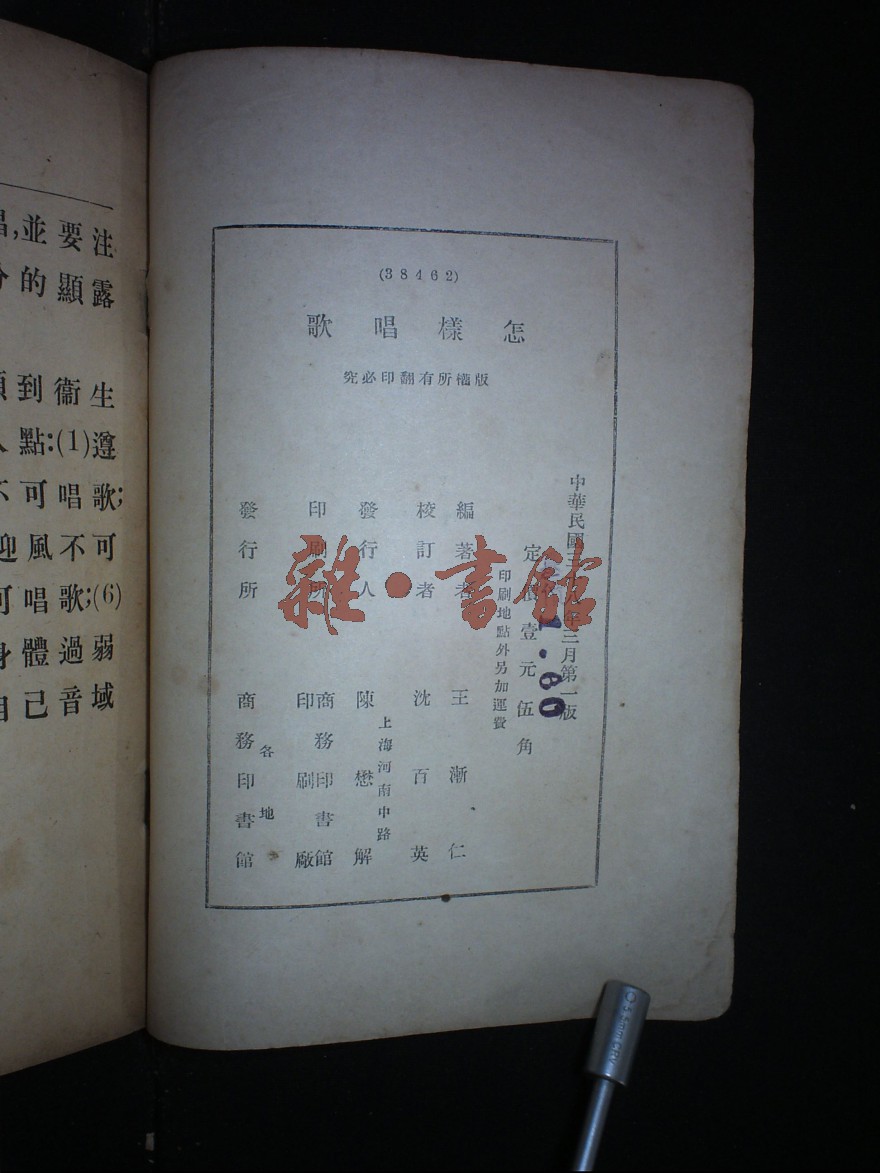 (38462)
怎樣唱歌
版權所有翻印必究
中華民國三 年三月第一版
定價壹元伍角
印刷地點外另加運費
1.60
編著者 王漸仁
校訂者 沈百英
上海河南中路
發行人 陳懋解
印刷所 商務印書館印刷廠
各地
發行所 商務印書館
雜·書館
,並要注
的顯露
到衞生
點:(1)遵
可唱歌;
風不可
可唱歌;(6)
體過弱
自己音域
5.5mm CRV